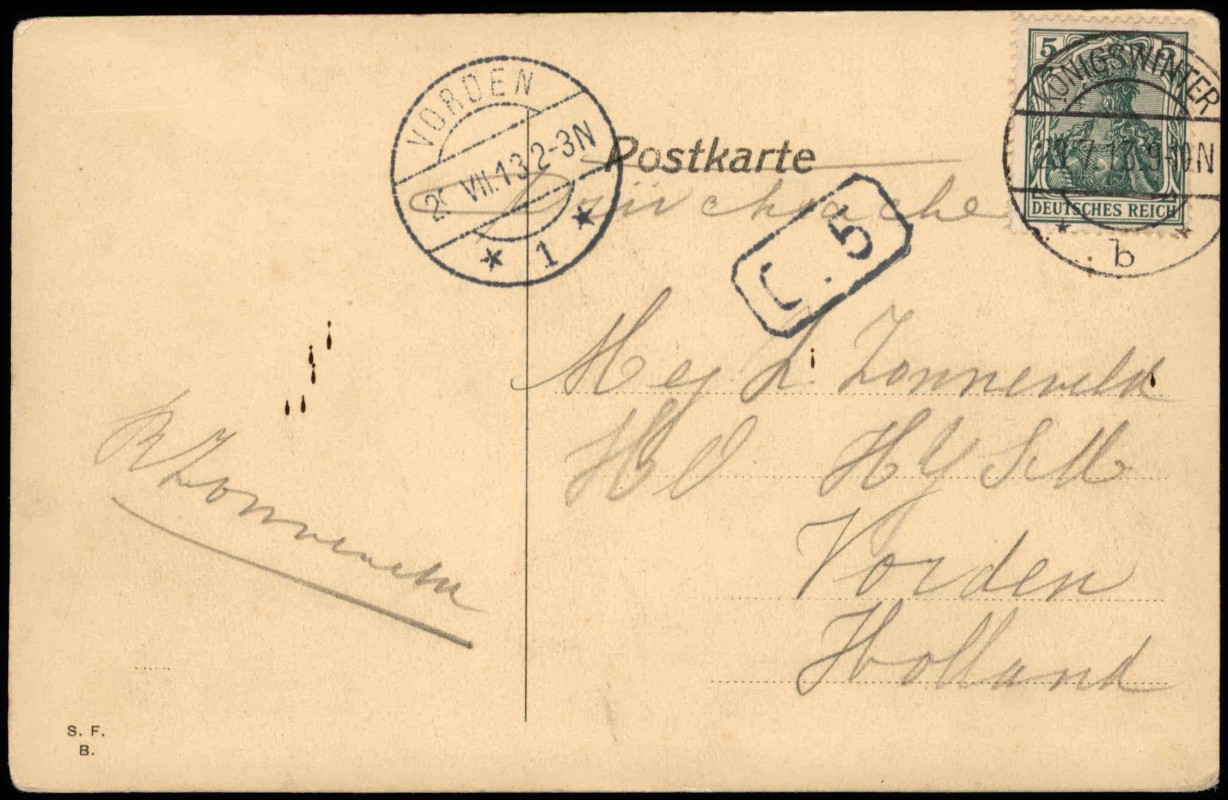 VORDEN
VII.13 2-3N
1
Postkarte
5 5
DEUTSCHES REICH
KÖNIGSWINTER
7.13.9-10N
b
Drücksache
C. 5
Mej L Zonneveld
H Y S M
Vorden
Holland
Zonneveld
S. F.
B.